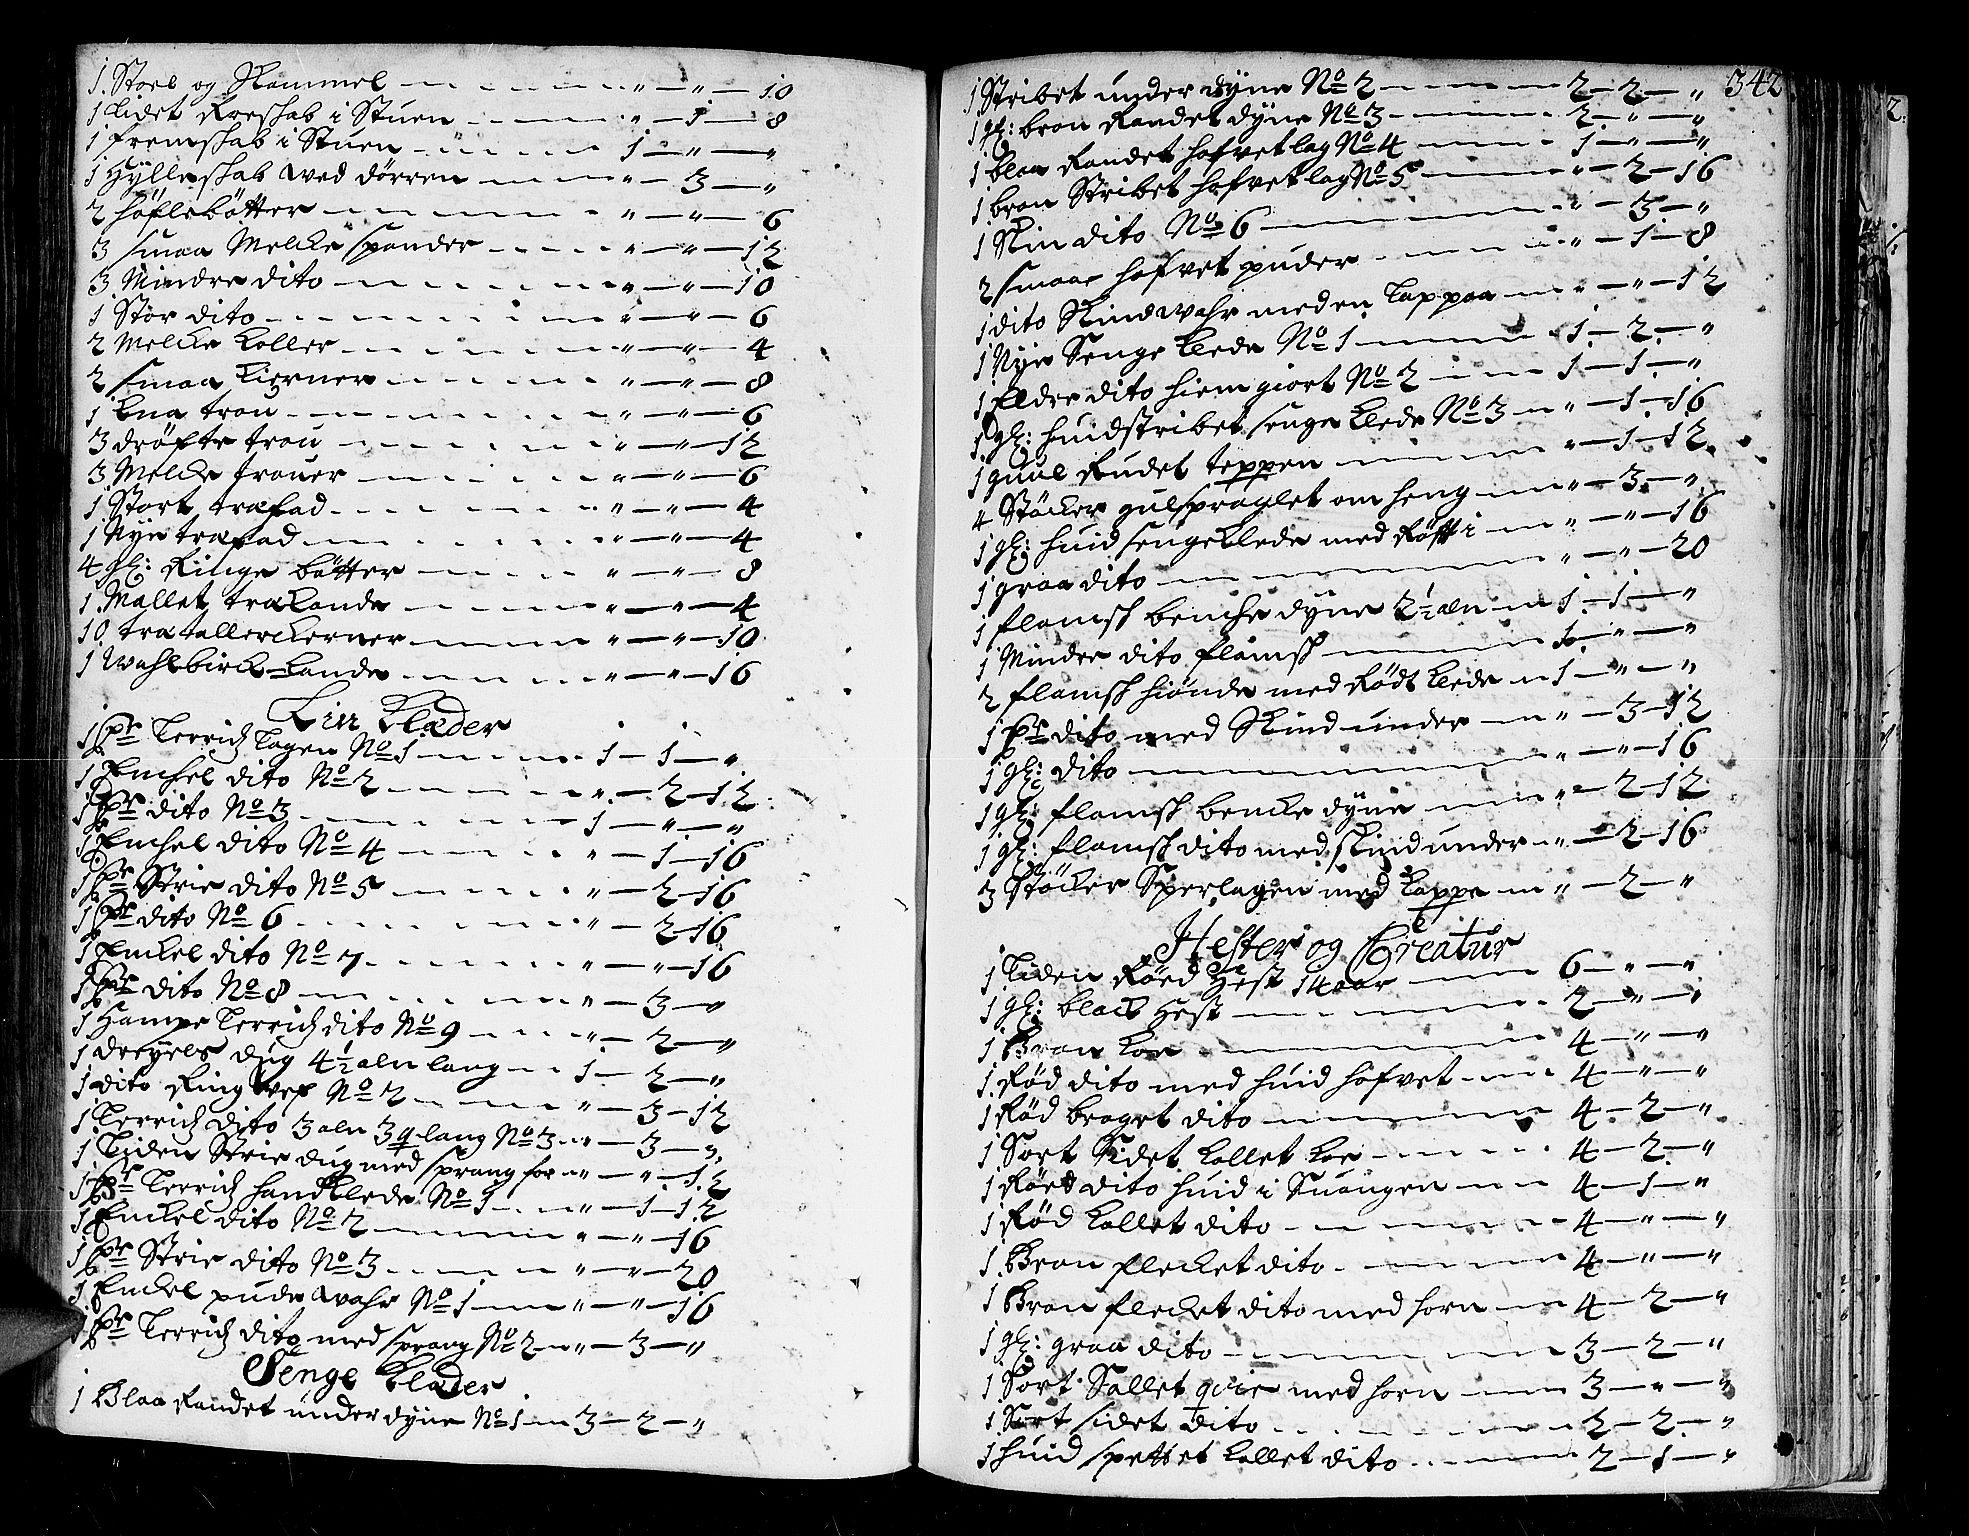 1 Stoel og Skammel — „ — „ — 10
1 Lidet Øreschab i Stuen — „ — 1 — 8
1 fremschab i Stuen — 1 — „ — „
1 Hylleschab wed dörren — „ — 3 — „
2 höflebøtter — „ — „ — 6
3 smaa Melcke spander — „ — „ — 12
3 Mindre dito — „ — „ — 10
1 Stör dito — „ — „ — 6
2 Melcke Koller — „ — „ — 4
2 smaa Kierner — „ — „ — 8
1 Kna trou — „ — „ — 6
3 dröfte trou — „ — „ — 12
3 Melcke trouer — „ — „ — 6
1 Stort træfad — „ — „ — 4
1 Nye træfad — „ — „ — 4
4 gl: Ringe bøtter — „ — „ — 8
1 Mallet træKande — „ — „ — 4
10 træ tallerckerner — „ — „ — 10
1 Wahlbirck-Kande — „ — „ — 16
Lin Klæder
1 Pr Lerrids Lagen No 1 — 1 — 1 — „
1 Enchel dito No 2 — „ — 2 — 12
1 Pr dito No 3 — 1 — „ — „
1 Enchel dito No 4 — „ — 1 — 16
1 Pr Strie dito No 5 — „ — 2 — 16
1 Pr dito No 6 — „ — 2 — 16
1 Enckel dito No 7 — „ — „ — 16
1 Pr dito No 8 — „ — 3 — „
1 Hampe Lerrids dito No 9 — „ — 2 — „
1 dreyels dug 4½ aln lang — 1 — 2 — „
1 dito Ring No 2 — „ — 3 — 12
1 Lerrids dito 3 aln 3 q lang No 3 — „ — 3 — „
1 Liden Strie dug med sprang for — „ — „ — 12
1 Pr Lerrids handklede No 1 — „ — 1 — 12
1 Enckel dito No 2 — „ — „ — 16
1 Pr Strie dito No 3 — „ — „ — 20
1 Enckel pude wahr No 1 — „ — „ — 16
1 Pr Lerrids dito med sprang No 2 — „ — 3 — „
Senge Klæder
1 Blaa Randet underdyne No 1 — 3 — 2 — „
342
1 Stribet under dyne No 2 — 2 — 2 — „
1 gl: brun Randet dyne No 3 — 2 — „ — „
1 blaa Randet hofvetlag No 4 — 1 — „ — „
1 brun Stribet hofvetlag No 5 — „ — 2 — 16
1 Skin dito No 6 — „ — 3 — „
2 smaae hofvet puder — „ — 1 — 8
1 dito Skindwahr med en Lap paa — „ — „ — 12
1 Nye Senge Klede No 1 — 1 — 2 — „
1 Eldre dito hiemgiort No 2 — 1 — 1 — „
1 gl: huidstribet senge Klede No 3 — „ — 1 — 16
1 guul Rudet teppen — „ — 1 — 12
4 Støcker gulspraglet om heng — „ — 3 — „
1 gl: huid sengeKlede med Røtt i — „ — „ — 16
1 graa dito — „ — „ — 20
1 flamsk benche dyne 2½ aln — 1 — 1 — „
1 Mindre dito flamsk — 1 — „ — „
2 flamsk hiønde med Rödt Klede — 1 — „ — „
1 Pr dito med Skind under — „ — 3 — 12
1 gl: dito — „ — „ — 16
1 gl: flamsk bencke dyne — „ — 2 — 12
1 gl: flamsk dito med skind under — „ — 2 — 16
3 Støcker Sperlagen med Kappe — „ — 2 — „
Hester og Creatur
1 Liden Røed Hest 14 aar — 6 — „ — „
1 gl: black Hest — 2 — „ — „
1 Brun Koe — 4 — „ — „
1 Rød dito med huid hofvet — 4 — „ — „
1 Rød braget dito — 4 — 2 — „
1 Sort Sidet Kollet Koe — 4 — 2 — „
1 Røed dito huid i Suangen — 4 — 1 — „
1 Rød Kollet dito — 4 — „ — „
1 Brun flecket dito — 4 — „ — „
1 Brun flecket dito med horn — 4 — 2 — „
1 gl: graa dito — 3 — 2 — „
1 Sort Sallet qvie med horn — 3 — „ — „
1 Sort sidet dito — 2 — 2 — „
1 huid spettet Kollet dito — 2 — 1 — „